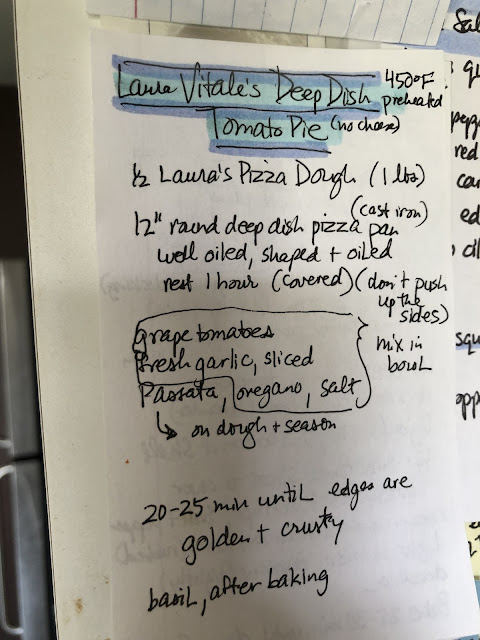 Laura Vitale's Deep Dish 450°F
preheated
Tomato Pie (no cheese)
½ Laura's Pizza Dough (1 lbs)
(cast iron)
12" round deep dish pizza pan
well oiled, shaped + oiled
rest 1 hour (covered) (don't push
up the
sides)
grape tomatoes
fresh garlic, sliced
Passata, oregano, salt
mix in
bowl
↳ on dough + season
20-25 min until edges are
golden + crusty
basil, after baking
red